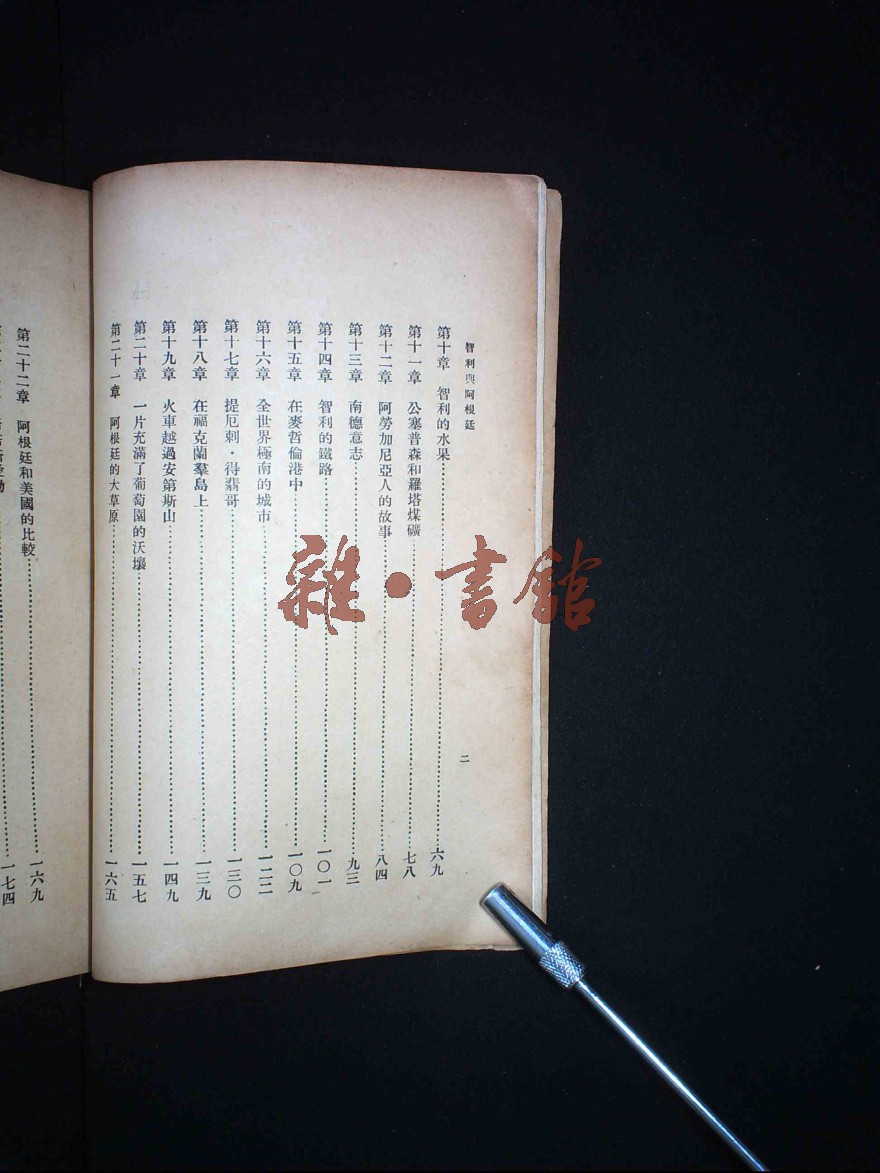 智利與阿根廷
第十章 智利的水果………六九
第十一章 公塞普森和羅塔煤礦………七八
第十二章 阿勞加尼亞人的故事………八四
第十三章 南德意志………九三
第十四章 智利的鐵路………一〇一
第十五章 在麥哲倫港中………一〇九
第十六章 全世界極南的城市………一二二
第十七章 提厄刺·得翡哥………一三〇
第十八章 在福克蘭羣島上………一三九
第十九章 火車越過安第斯山………一四九
第二十章 一片充滿了葡萄園的沃壤………一五七
第二十一章 阿根廷的大草原………一六五
二
第二十二章 阿根廷和美國的比較………一六九
一七四
雜·書館